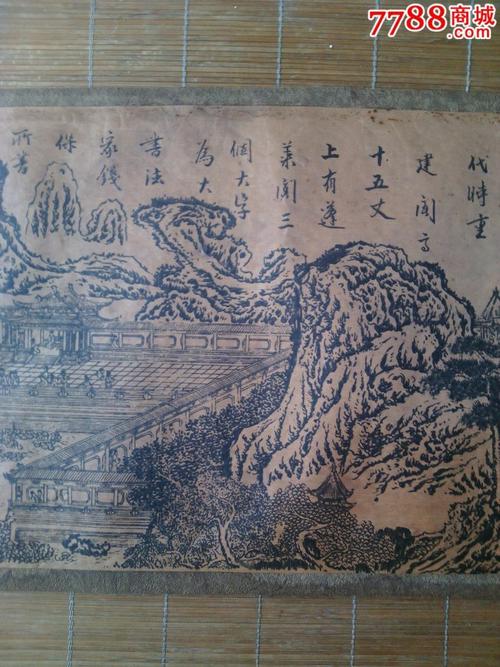 7788商城
代時重
建閣高
十五丈
上有蓬
萊閣三
個大字
為大
書法
家錢
作
所書